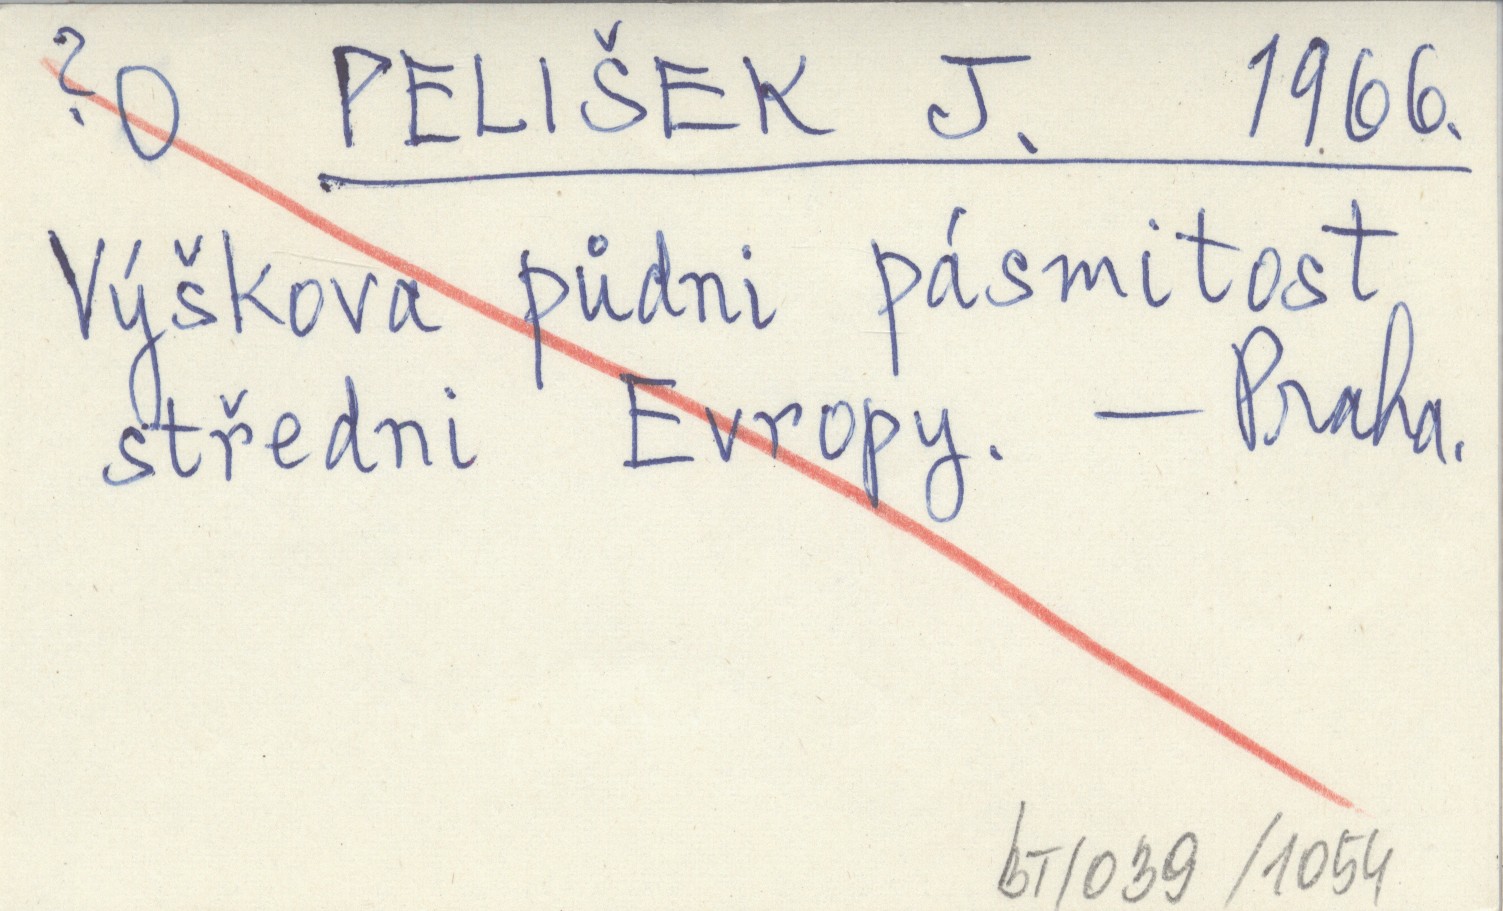 ? O PELIŠEK J. 1966.
Výškova půdni pásmitost
středni Evropy. — Praha.
bT/039 /1054